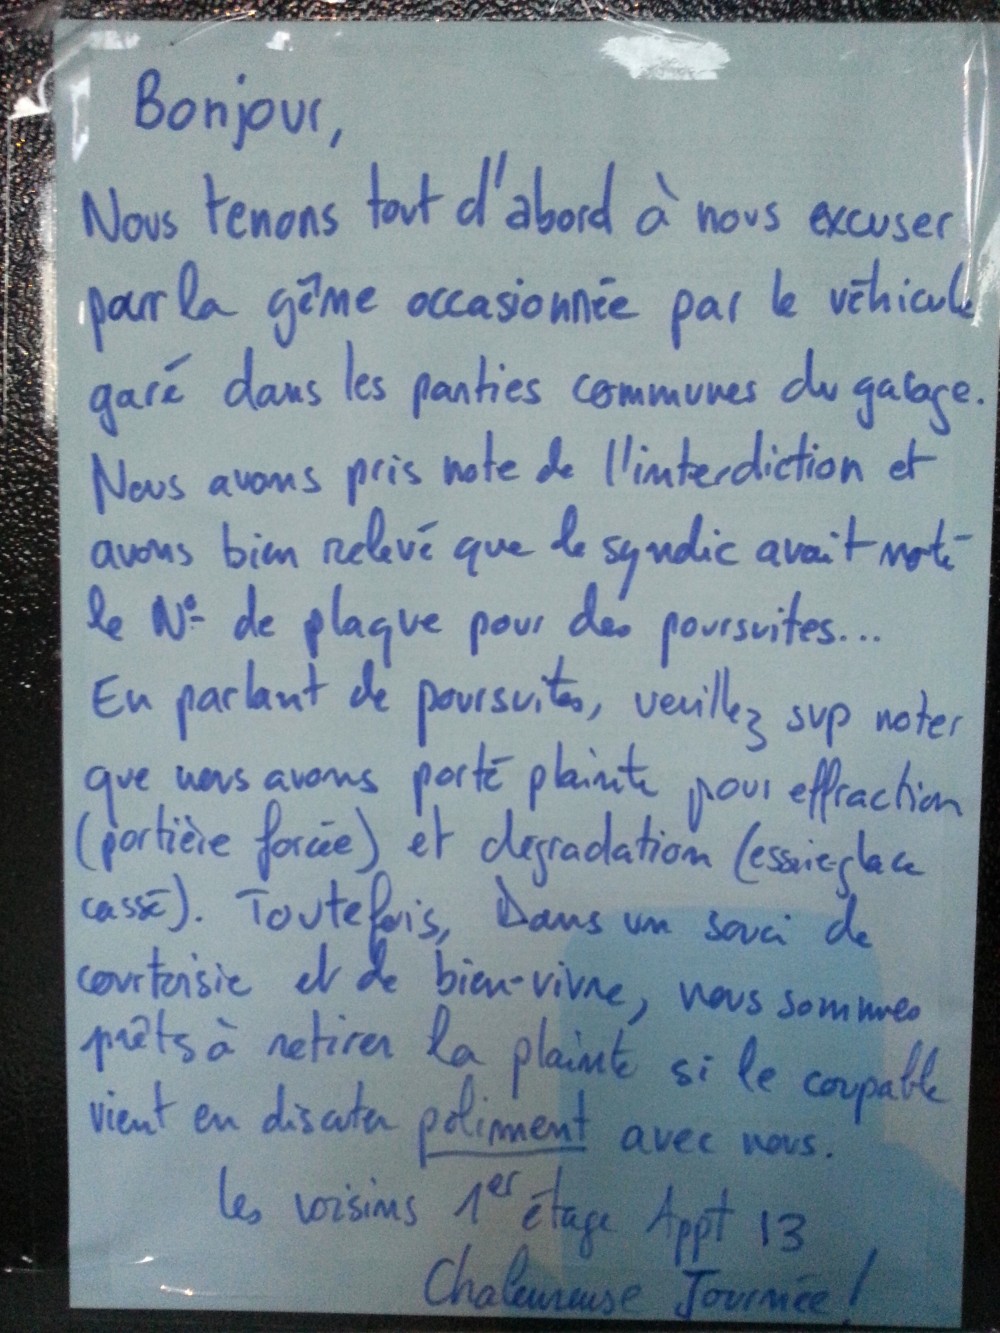 Bonjour,
Nous tenons tout d'abord à nous excuser
pour la gêne occasionnée par le véhicule
garé dans les parties communes du garage.
Nous avons pris note de l'interdiction et
avons bien relevé que le syndic avait noté
le N° de plaque pour des poursuites...
En parlant de poursuites, veuillez svp noter
que nous avons porté plainte pour effraction
(portière forcée) et degradation (essuie-glace
cassé). Toutefois, Dans un souci de
courtoisie et de bien-vivre, nous sommes
prêts à retirer la plainte si le coupable
vient en discuter poliment avec nous.
Les voisins 1er étage Appt 13
Chaleureuse Journée !